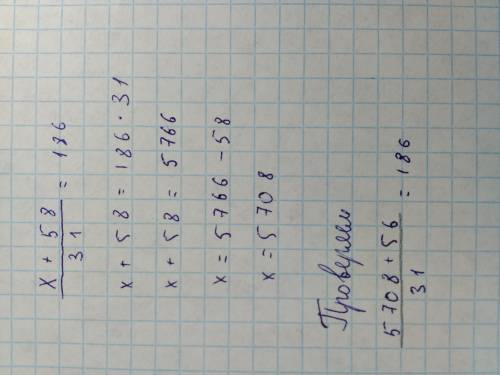 x + 58 / 31 = 186
x + 58 = 186 · 31
x + 58 = 5766
x = 5766 - 58
x = 5708
Проверяем
5708 + 56 / 31 = 186